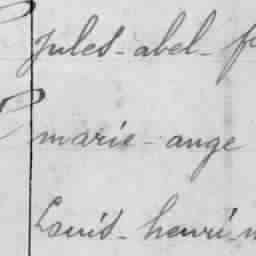 Jules - abel -
marie - ange
Louis - henri -